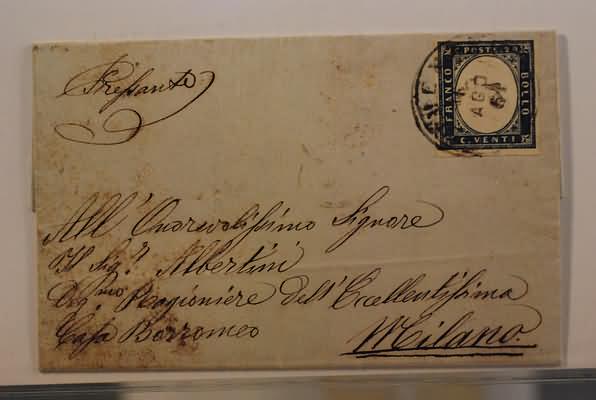 Pressante
POSTE 20
FRANCO
BOLLO
C. VENTI
AGO
All' Onorevolissimo Signore
Il Sig.r Albertini
Deg.mo Ragioniere Dell' Eccellentissima
Casa Borromeo
Milano.